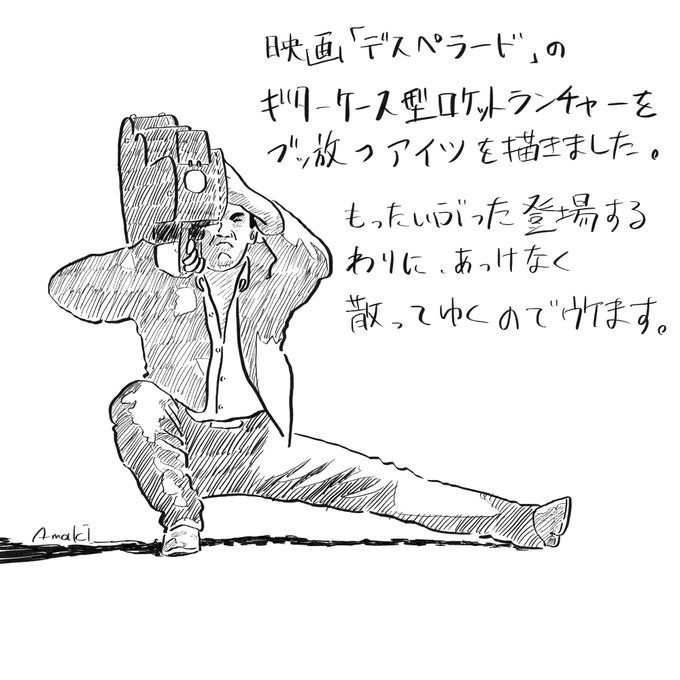 映画「デスペラード」の
ギターケース型ロケットランチャーを
ブッ放つアイツを描きました。
もったいぶった登場する
わりに、あっけなく
散ってゆくのでウケます。
Amaki